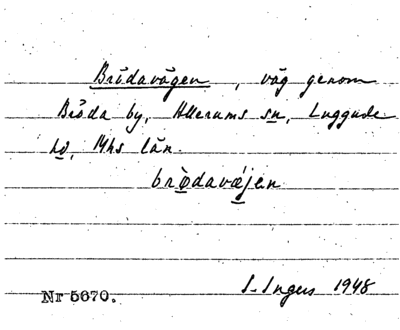 Brödavägen, väg genom
Bröda by, Allerums sn, Luggude
hd, Mhs län.
brödavæjen
I. Ingers 1948
Nr 5670.